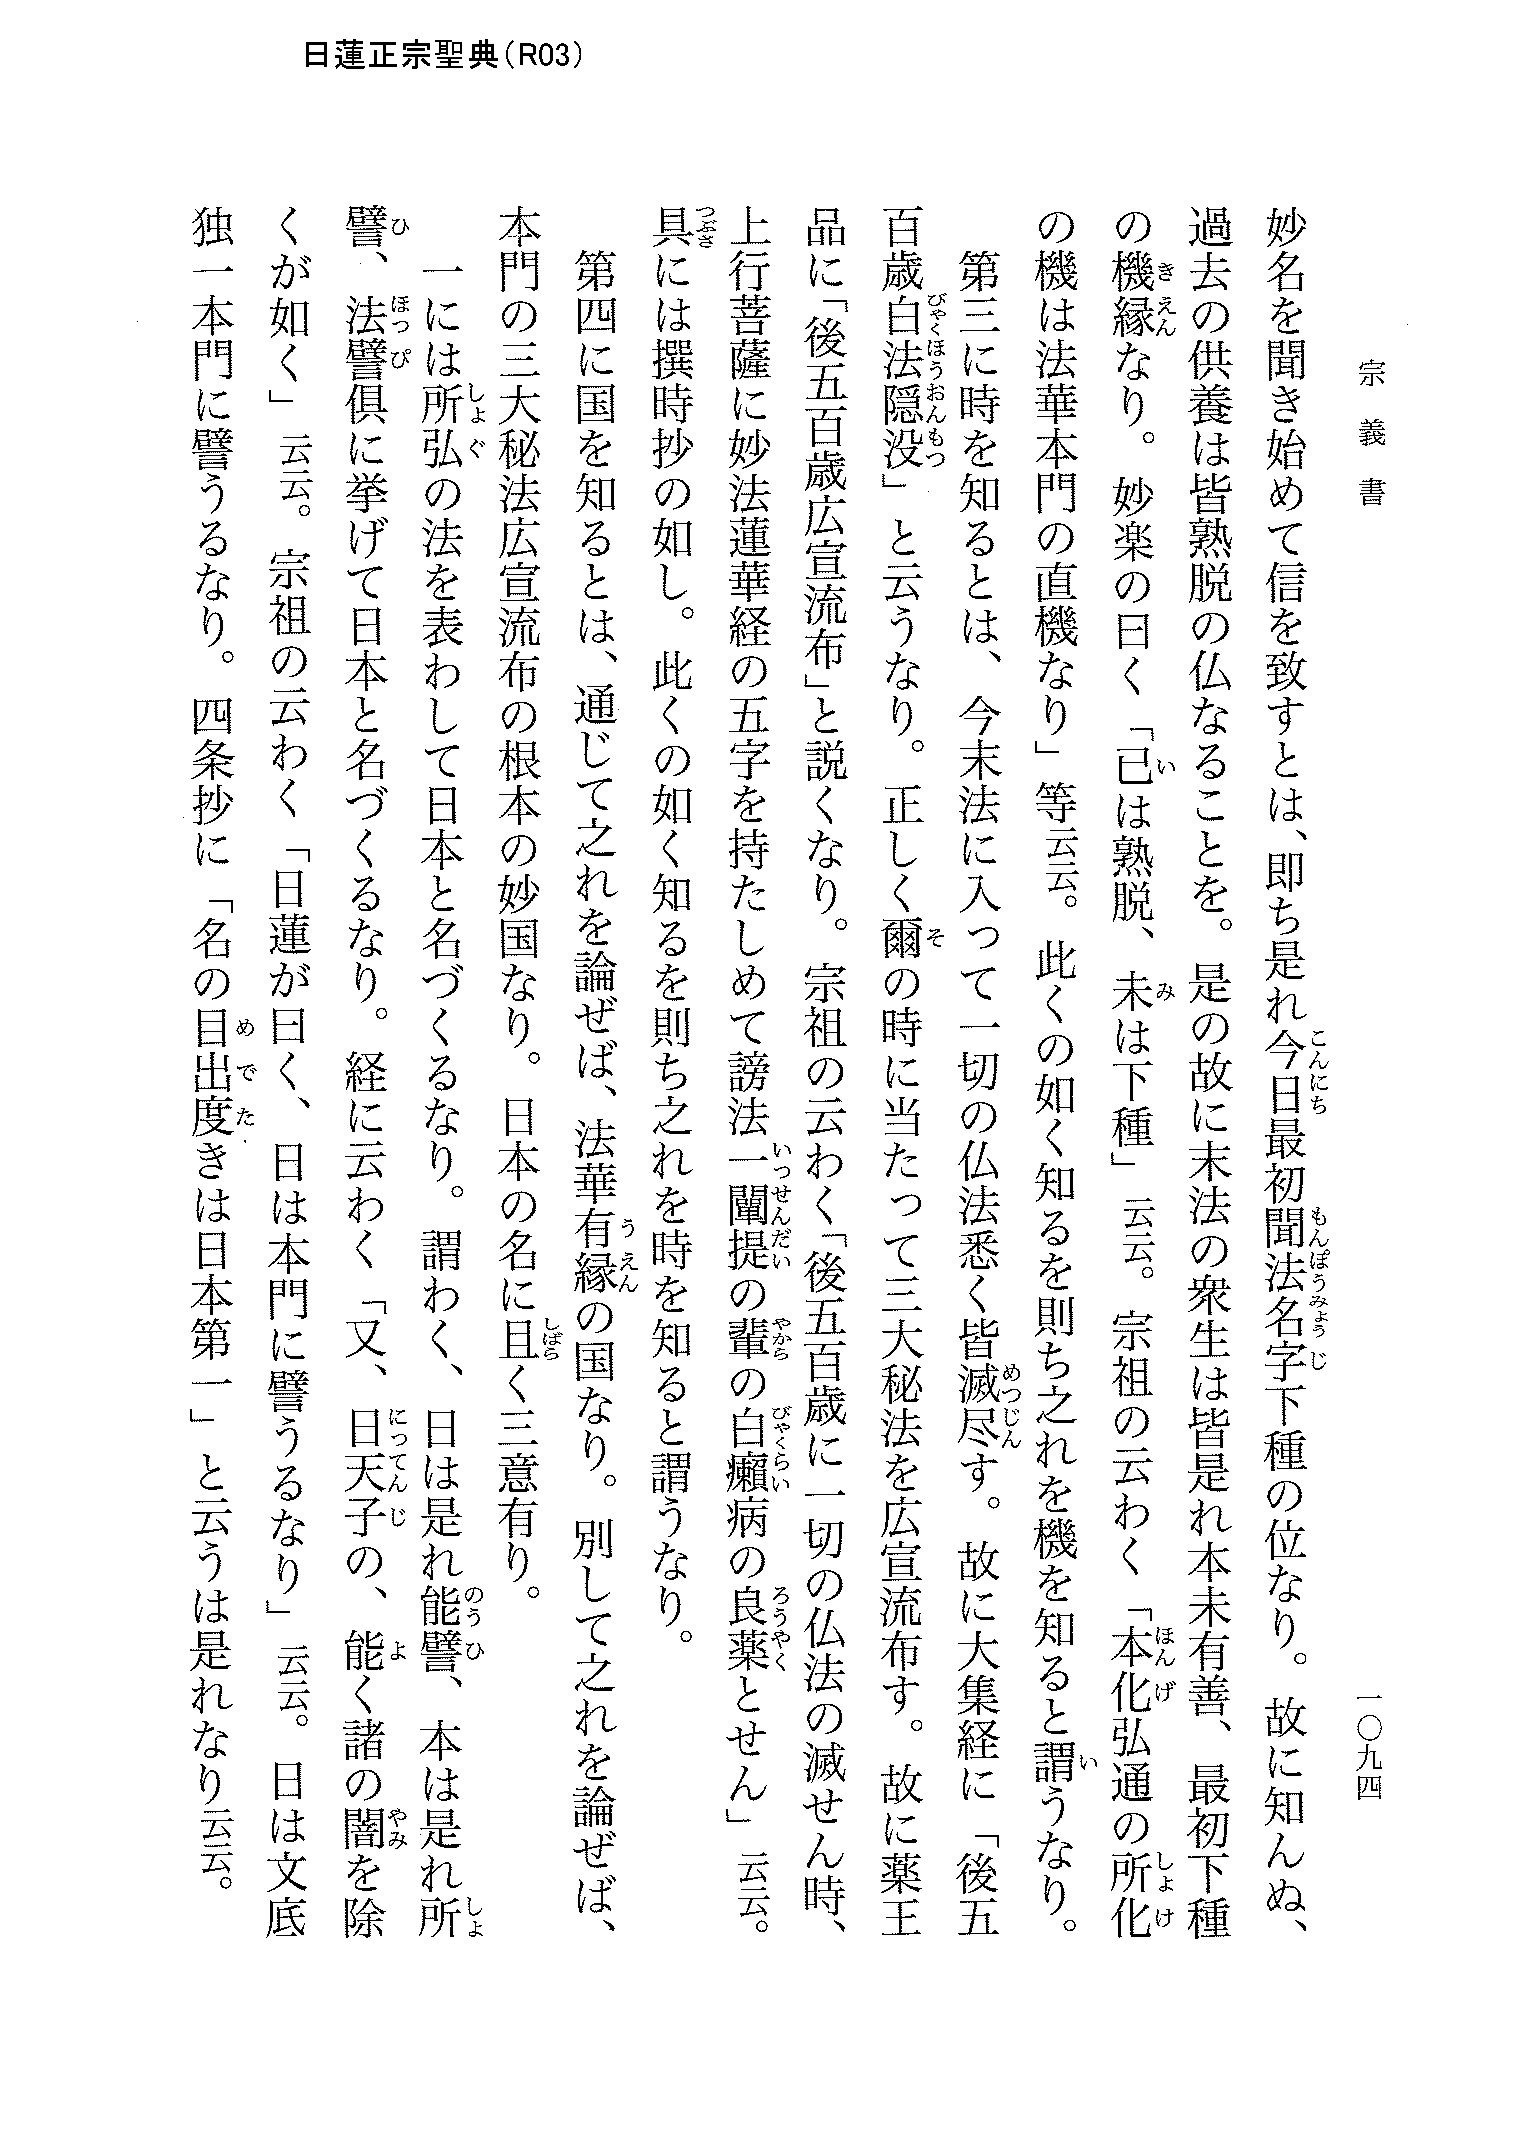 日蓮正宗聖典（R03）
宗義書
一〇九四
妙名を聞き始めて信を致すとは、即ち是れ今日最初聞法名字下種の位なり。故に知んぬ、
過去の供養は皆熟脱の仏なることを。是の故に末法の衆生は皆是れ本未有善、最初下種
の機縁なり。妙楽の曰く「已は熟脱、未は下種」云云。宗祖の云わく「本化弘通の所化
の機は法華本門の直機なり」等云云。此くの如く知るを則ち之れを機を知ると謂うなり。
第三に時を知るとは、今末法に入って一切の仏法悉く皆滅尽す。故に大集経に「後五
百歳白法隠没」と云うなり。正しく爾の時に当たって三大秘法を広宣流布す。故に薬王
品に「後五百歳広宣流布」と説くなり。宗祖の云わく「後五百歳に一切の仏法の滅せん時、
上行菩薩に妙法蓮華経の五字を持たしめて謗法一闡提の輩の白癩病の良薬とせん」云云。
具には撰時抄の如し。此くの如く知るを則ち之れを時を知ると謂うなり。
第四に国を知るとは、通じて之れを論ぜば、法華有縁の国なり。別して之れを論ぜば、
本門の三大秘法広宣流布の根本の妙国なり。日本の名に且く三意有り。
一には所弘の法を表わして日本と名づくるなり。謂わく、日は是れ能譬、本は是れ所
譬、法譬倶に挙げて日本と名づくるなり。経に云わく「又、日天子の、能く諸の闇を除
くが如く」云云。宗祖の云わく「日蓮が曰く、日は本門に譬うるなり」云云。日は文底
独一本門に譬うるなり。四条抄に「名の目出度きは日本第一」と云うは是れなり云云。